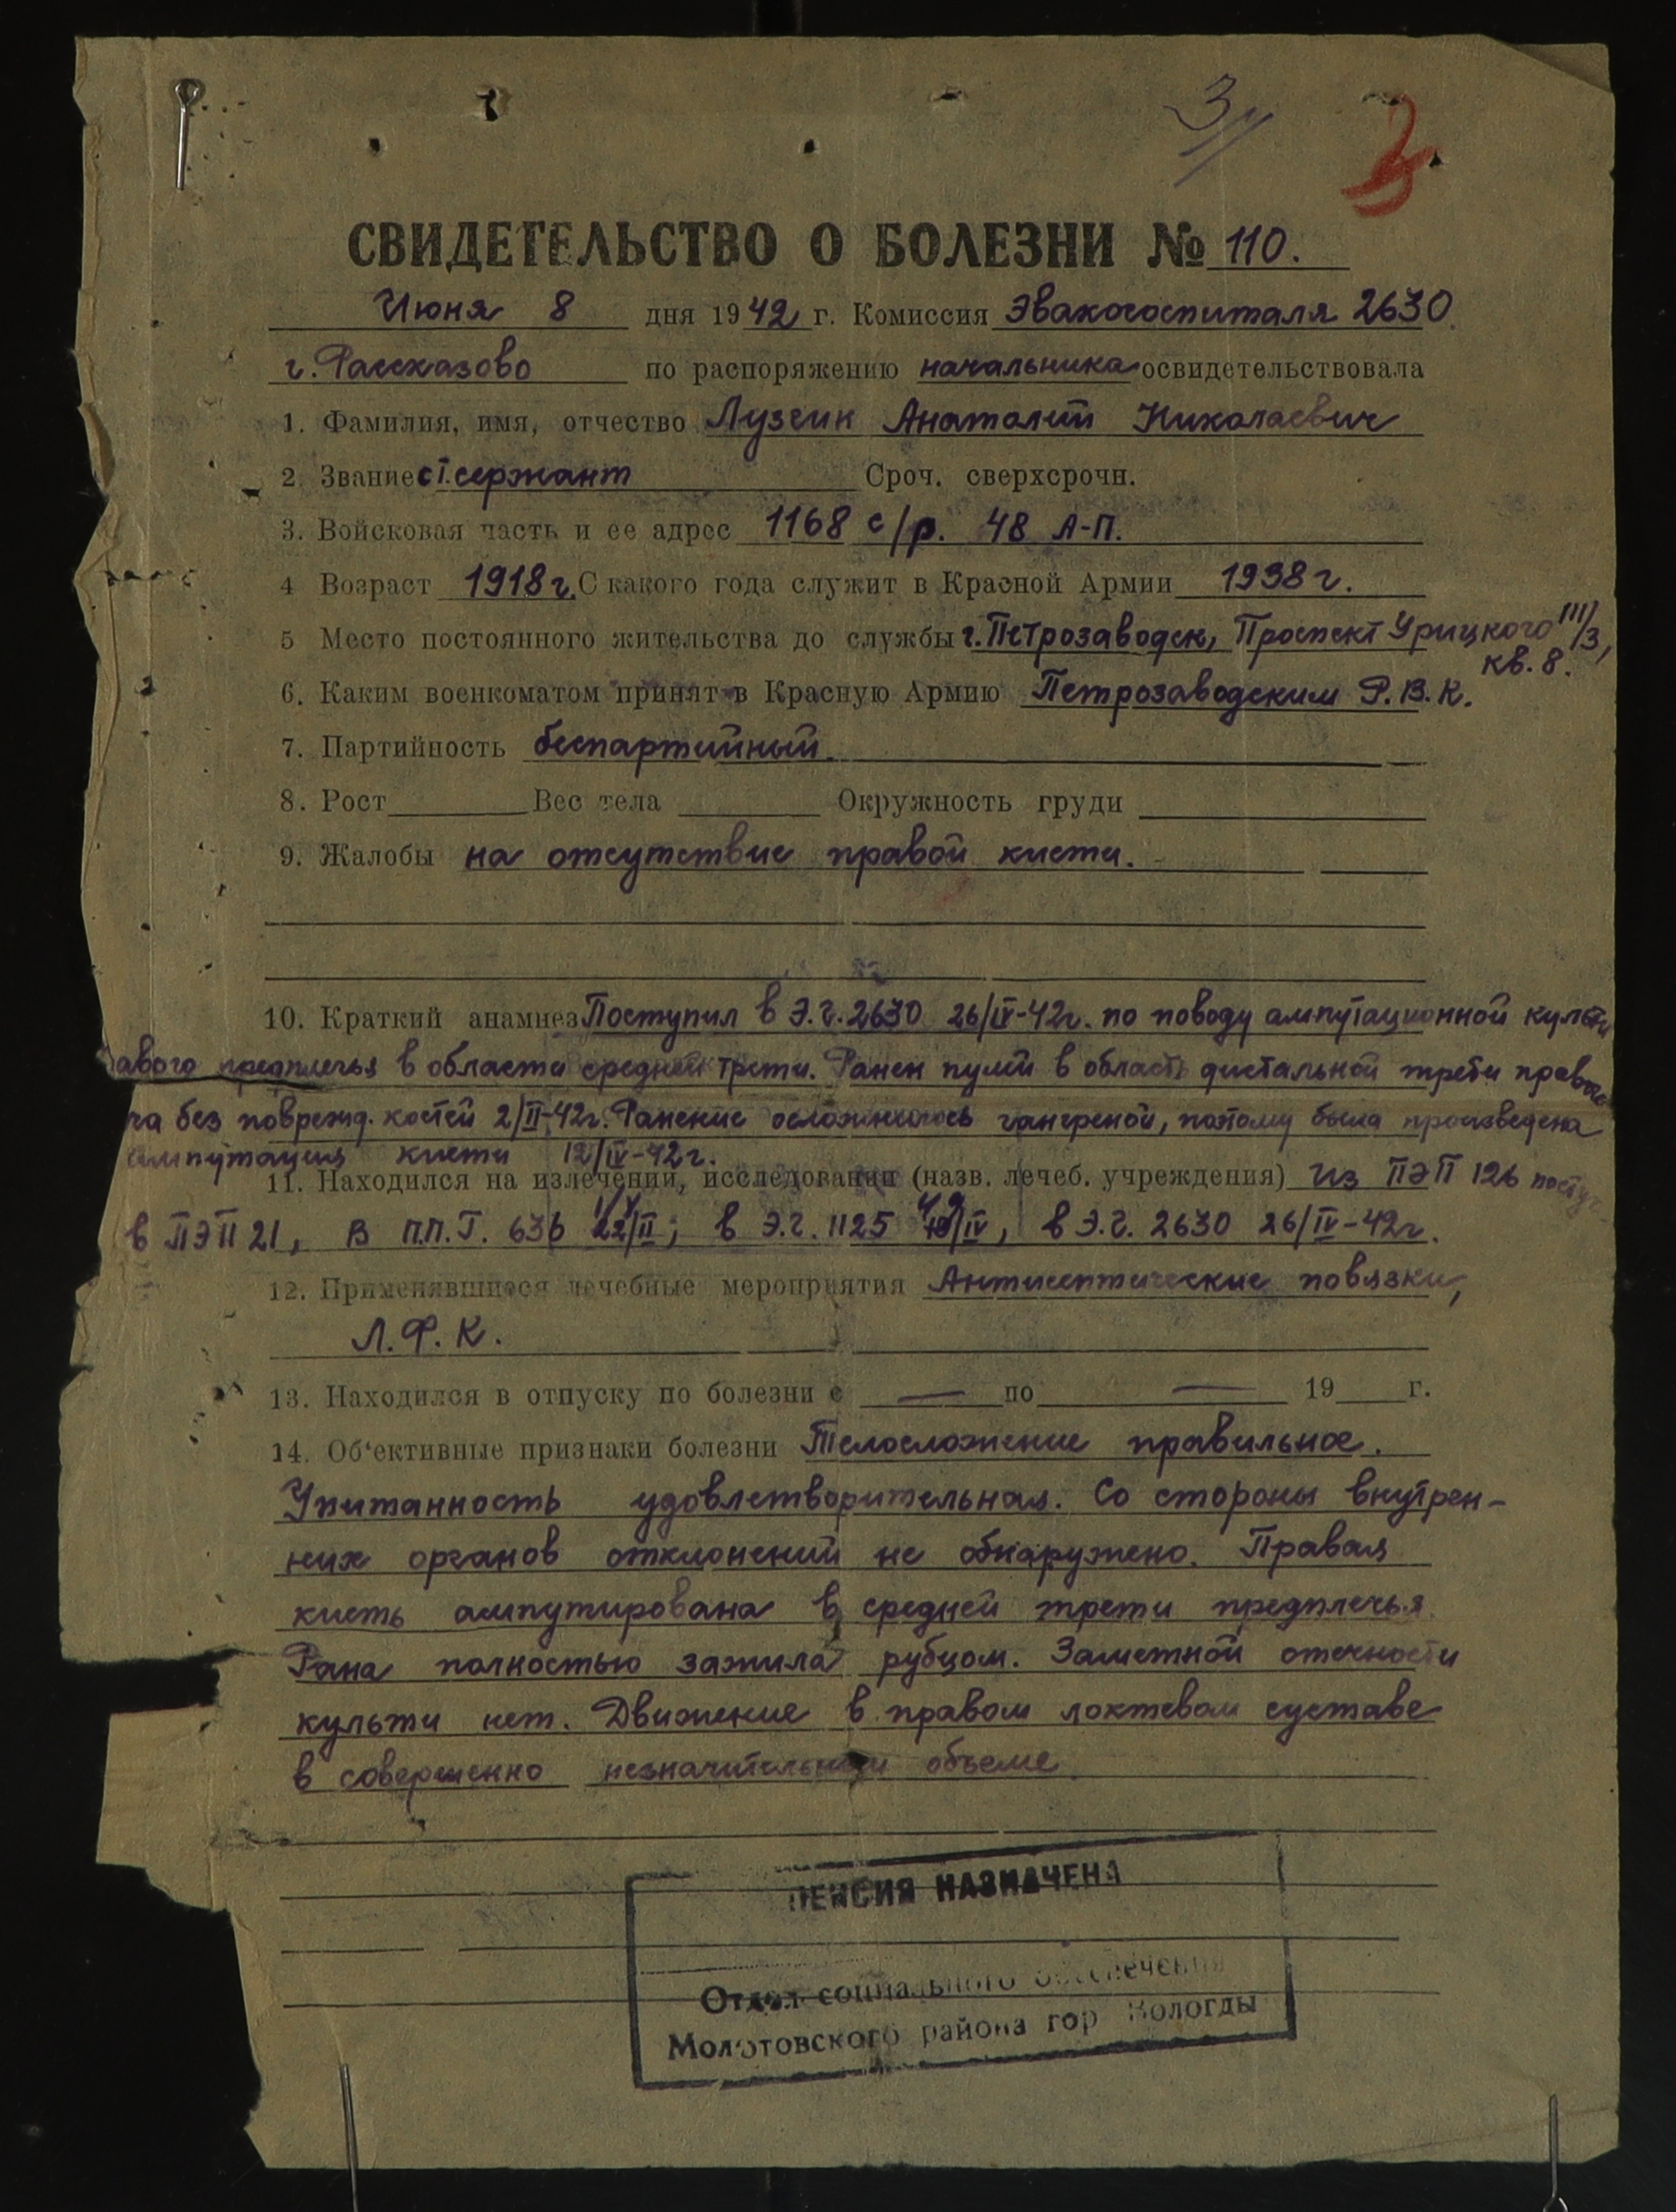 3
СВИДЕТЕЛЬСТВО О БОЛЕЗНИ № 110.
Июня 8 дня 1942 г. Комиссия Эвакогоспиталя 2630
г. Рассказово по распоряжению начальника освидетельствовала
1. Фамилия, имя, отчество Лузгин Анатолий Николаевич
2. Звание ст. сержант Сроч. сверхсрочн.
3. Войсковая часть и ее адрес 1168 с/р. 48 А-П.
4 Возраст 1918 г. С какого года служит в Красной Армии 1938 г.
5 Место постоянного жительства до службы г. Петрозаводск, Проспект Урицкого III/3,
кв. 8.
6. Каким военкоматом принят в Красную Армию Петрозаводским Р.В.К.
7. Партийность беспартийный.
8. Рост Вес тела Окружность груди
9. Жалобы на отсутствие правой кисти.
10. Краткий анамнез Поступил в Э.Г. 2630 26/IV-42г. по поводу ампутационной культи
авого предплечья в области средней трети. Ранен пулей в область дистальной трети правого
ча без поврежд. костей 2/II-42г. Ранение осложнилось гангреной, потому была произведена
ампутация кисти 12/IV-42г.
11. Находился на излечении, исследовании (назв. лечеб. учреждения) Из ПЭП 126
в ПЭП 21, в П.П.Г. 636 /II; в Э.Г. 1125 /IV, в Э.Г. 2630 26/IV-42г.
12. Применявшиеся лечебные мероприятия Антисептические повязки,
Л.Ф.К.
13. Находился в отпуску по болезни с — по — 19 г.
14. Об'ективные признаки болезни Телосложение правильное.
Упитанность удовлетворительная. Со стороны внутрен-
них органов отклонений не обнаружено. Правая
кисть ампутирована в средней трети предплечья.
Рана полностью зажила рубцом. Заметной отечности
культи нет. Движение в правом локтевом суставе
в совершенно незначительном объеме
ПЕНСИЯ НАЗНАЧЕНА
Отдел социального обеспечения
Молотовского района гор Вологды